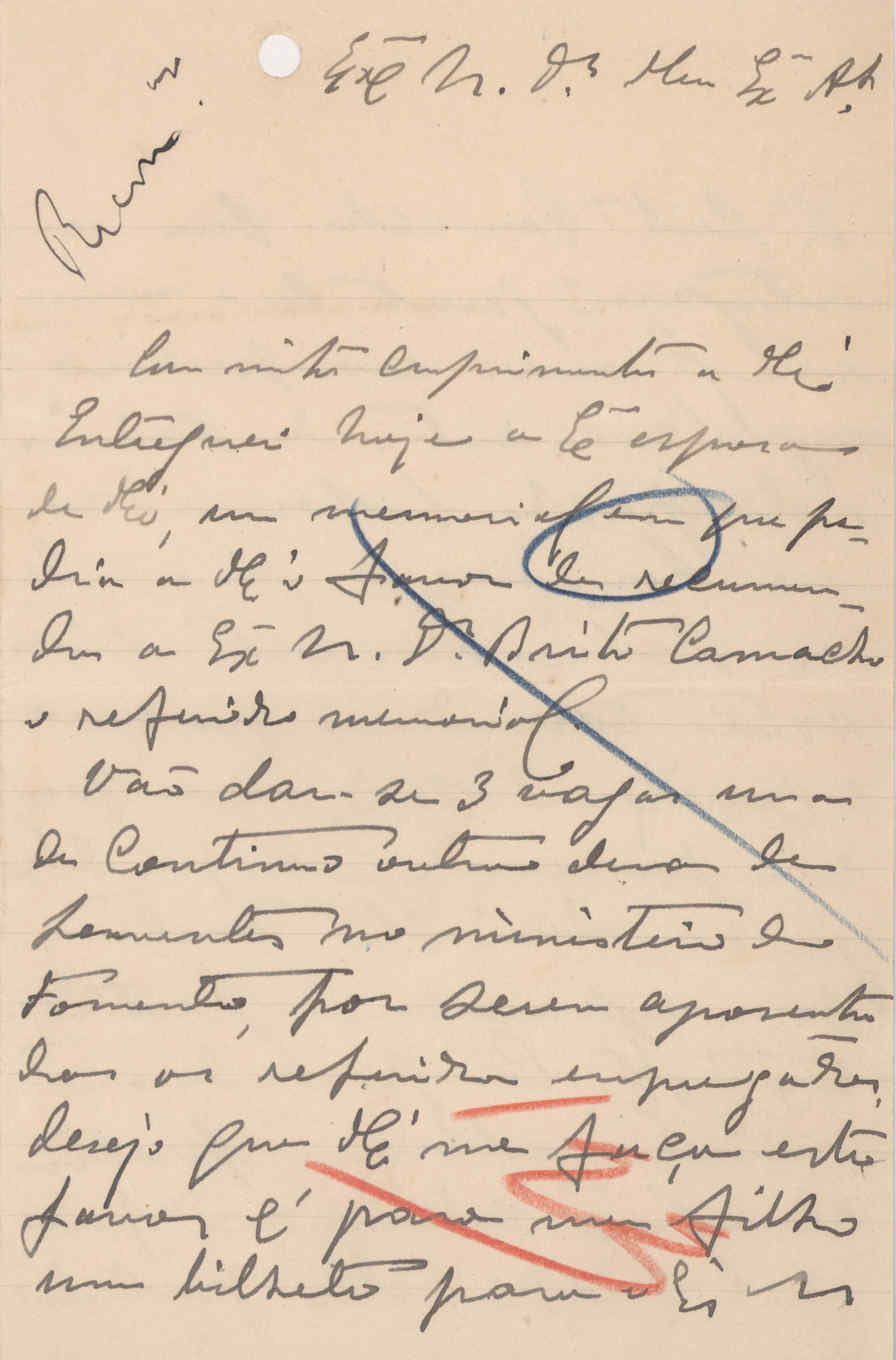 Exmº Sr. Dr. Meu Exmº Am.
Com muitos cumprimentos a V. Exª
Entreguei hoje a Exª esposa
de V. Exª, um memorial em que pe-
dia a V. Exª o favor de recomen-
dar a Exº Sr. Dr. Brito Camacho
o referido memorial.
Vão dar-se 3 vagas uma
de Continuo outra duas de
serventes no ministerio do
Fomento, por serem aposenta
dos os referidos empregados,
desejo que V. Exª me faça este
favor é para meu filho
um bilhete para o Exº Sr